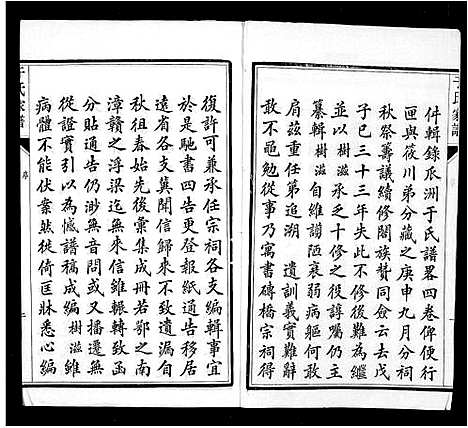 于氏家譜
件輯錄瓜洲于氏譜畧四卷俾便行
匣與筱川弟分藏之庚申九月分祠
秋祭籌議續修闔族贊同僉云去戊
子已三十三年失此不修後將難繼
並以樹滋承乏十修之役諄囑仍主
纂輯樹滋自維譾陋衰弱病軀何堪
肩茲重任第追溯　遺訓義實難辭
敢不黽勉從事乃寓書磚橋宗祠得
復許可兼承任宗祠各支編輯事宜
於是馳書四告更登報紙通告移居
遠省各支冀聞信歸來不致遺漏自
秋徂春始先後彙集成冊若鄂之南
漳贛之浮梁已無來信雖輾轉致函
分貼通告仍渺無音問或又播遷無
從證實引以為憾譜稿成編樹滋雖
病體不能伏案然徙倚匡牀悉心編
于氏家譜
序